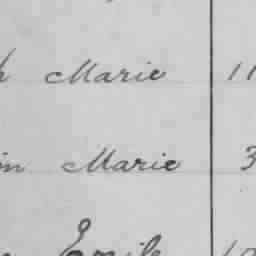 Marie 11
in Marie 3
Emile 10